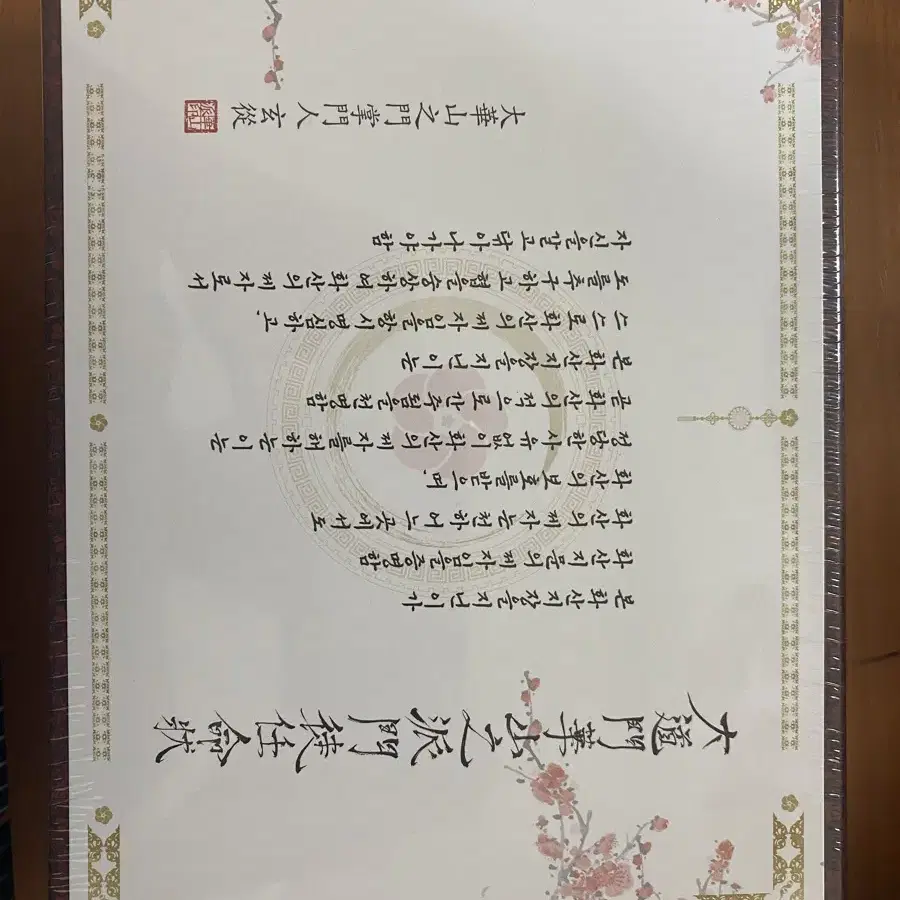 大道門華山之派門徒任命狀
본 화산지장을 지닌 이가
화산지문의 제자임을 증명함
화산의 제자는 천하 어느 곳에서도
화산의 보호를 받으며,
정당한 사유 없이 화산의 제자를 해하는 이는
본 화산의 적으로 간주됨을 천명함
본 화산지장을 지닌 이는
스스로 화산의 제자임을 항시 명심하고,
도를 추구하고 협을 숭상하며 화산의 제자로서
자신을 갈고 닦아 나가야 함
大華山之門掌門人 玄從